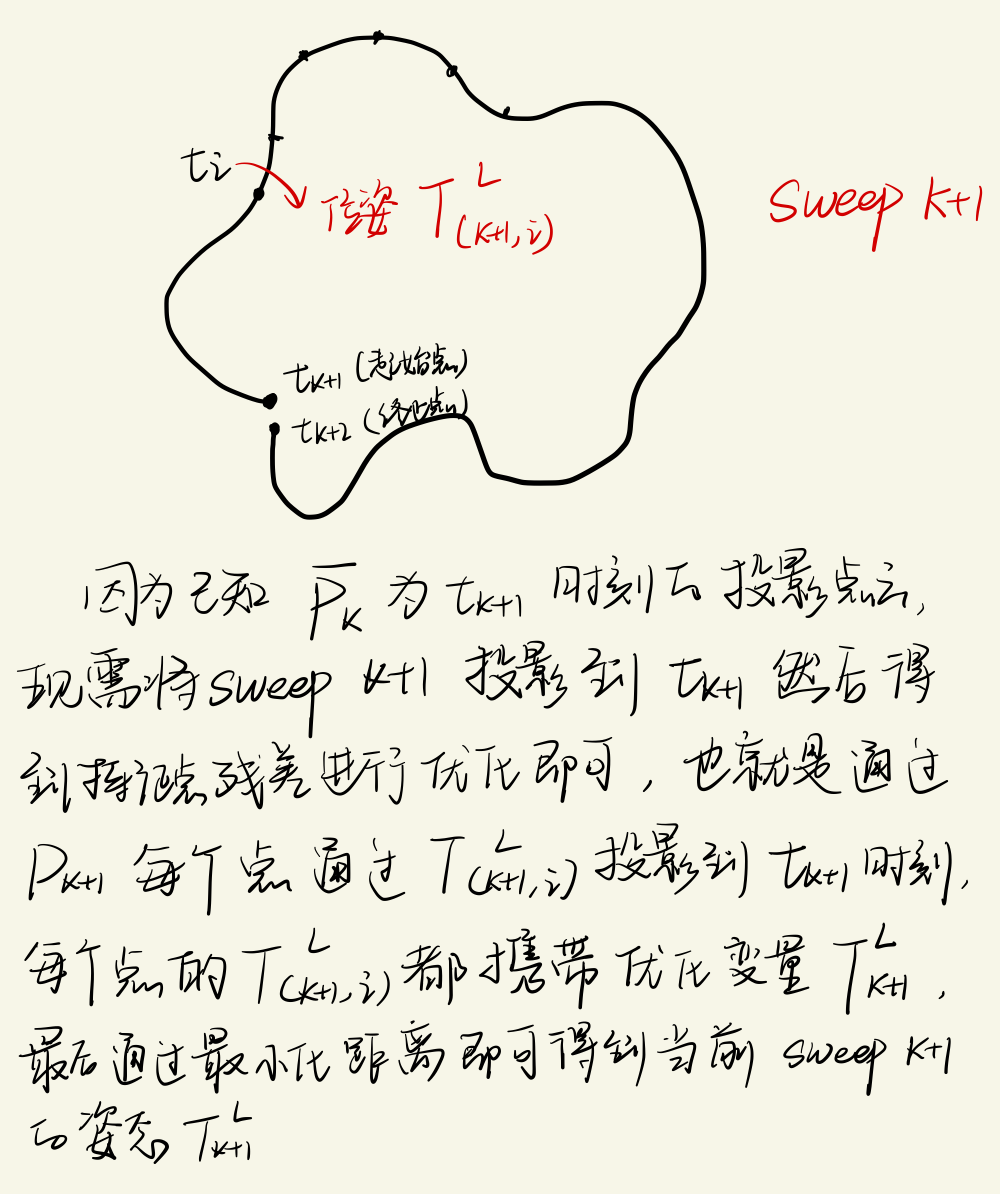 t_i
位姿 T^L_(k+1,i)
sweep k+1
t_k+1 (起始点)
t_k+2 (终止点)
因为已知 P̅_k 为 t_k+1 时刻的投影点云,
现需将sweep k+1 投影到 t_k+1 然后得
到特征点残差进行优化即可, 也就是通过
P_k+1 每个点通过 T^L_(k+1,i) 投影到 t_k+1 时刻,
每个点的 T^L_(k+1,i) 都携带优化变量 T^L_k+1,
最后通过最小化距离即可得到当前 sweep k+1
的姿态 T^L_k+1